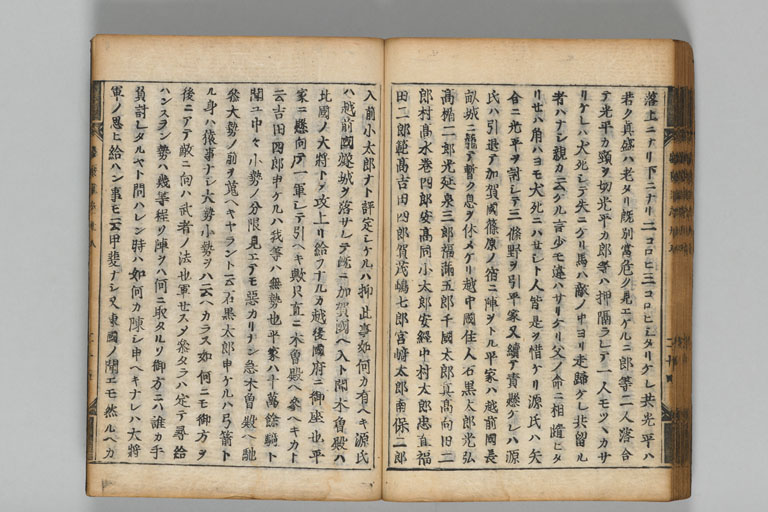 落上ニナリ下ニナリ二コロヒ三コロヒシタリケレ共光平ハ
若ク真盛ハ老タリ既別當危ク見エケルニ郎等二人落合
テ光平カ頸ヲ切光平カ郎等ハ押隔ラレテ一人モツヽカサ
リケレハ犬死シテ失ニケリ馬ハ敵ノ中ヨリ走歸ケレ共留ル
者ハナシ親カ云ケル言少モ違ハサリケリ父ノ命ニ相隨ヒタ
リせハ角ハヨモ犬死ニハせシト人皆是ヲ惜ケリ源氏ハ矢
合ニ光平ヲ討レテ三條野ヲ引平家又續テ責懸ケレハ源
氏ハ引退テ加賀國篠原ノ宿ニ陣ヲトル平家ハ越前國長
畝城ニ籠テ暫ク息ヲ休メケリ越中國住人石黒太郎光弘
高楯二郎光延泉三郎福満五郎千國太郎真高向旧二
郎村髙水巻四郎安高同小太郎安経中村太郎忠直福
田二郎範高吉田四郎賀茂嶋七郎宮崎太郎南保二郎
入前小太郎ナト評定シケルハ抑此事如何カ有ヘキ源氏
ハ越前國燧城ヲ落サレテ既ニ加賀國ヘ入ト聞木曽殿ハ
北國ノ大将トテ攻上リ給フナルカ越後國府ニ御座也平
家ニ懸向戸一軍シテ引ヘキ歟只直ニ木曽殿ヘ參ヘキカト
云吉田四郎申ケルハ我等ハ無勢也平家ハ十萬餘騎ト
聞ユ中々小勢ノ分限見エテモ悪カリナン急木曽殿ヘ馳
參大勢ノ前ヲ蒐ヘキヤラント云石黒太郎申ケルハ弓箭ト
ル身ハ猿事ナシ大勢小勢ヲハ云ヘカラス如何ニモ御方ヲ
後ニアテ敵ニ向ハ武者ノ法也軍せスメ參タラハ定テ尋給
ハンスラン勢ハ幾等程ソ陣ヲハ何ニ取タルソ御方ニハ誰カ手
負討レタルヤト問ハレン時ハ如何カ陳シ申ヘキナレハ大將
軍ノ思ヒ給ハン事モ云甲斐ナシ又東國ノ聞エモ然ルヘカ